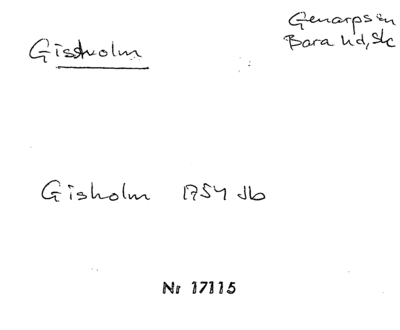 Gisholm
Genarps sn
Bara hd, Sk
Gisholm 1754 Jb
Nr 17115